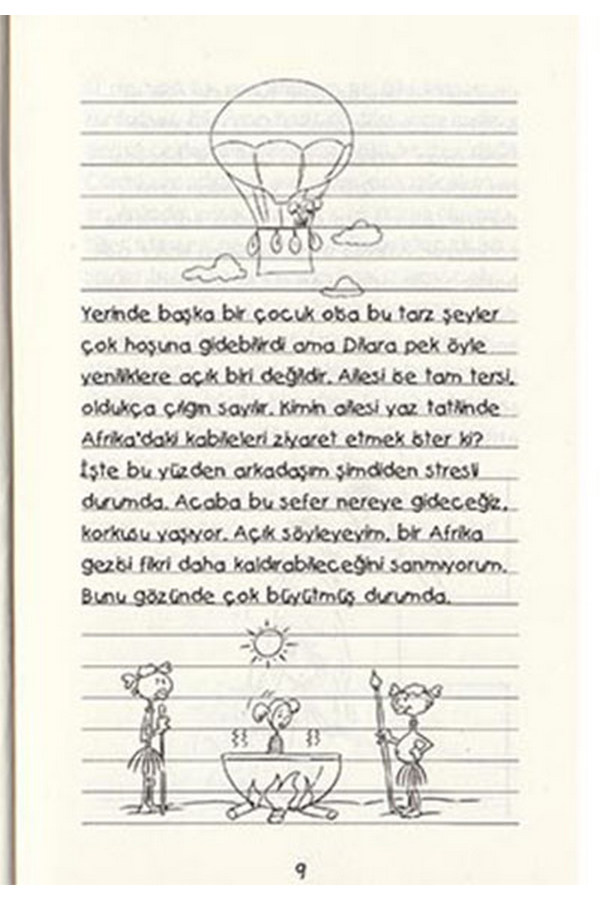 Yerinde başka bir çocuk olsa bu tarz şeyler
çok hoşuna gidebilirdi ama Dilara pek öyle
yeniliklere açık biri değildir. Ailesi ise tam tersi,
oldukça çılgın sayılır. Kimin ailesi yaz tatilinde
Afrika'daki kabileleri ziyaret etmek ister ki?
İşte bu yüzden arkadaşım şimdiden stresli
durumda. Acaba bu sefer nereye gideceğiz,
korkusu yaşıyor. Açık söyleyeyim, bir Afrika
gezisi fikri daha kaldırabileceğini sanmıyorum.
Bunu gözünde çok büyütmüş durumda.
9